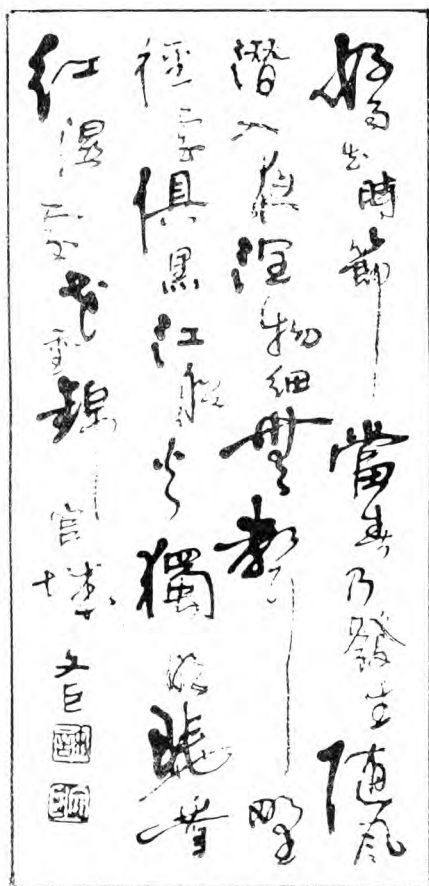 好雨知時節當春乃發生隨風
潛入夜潤物細無聲野
徑雲俱黑江船火獨明曉看
紅濕處花重錦官城 文巨